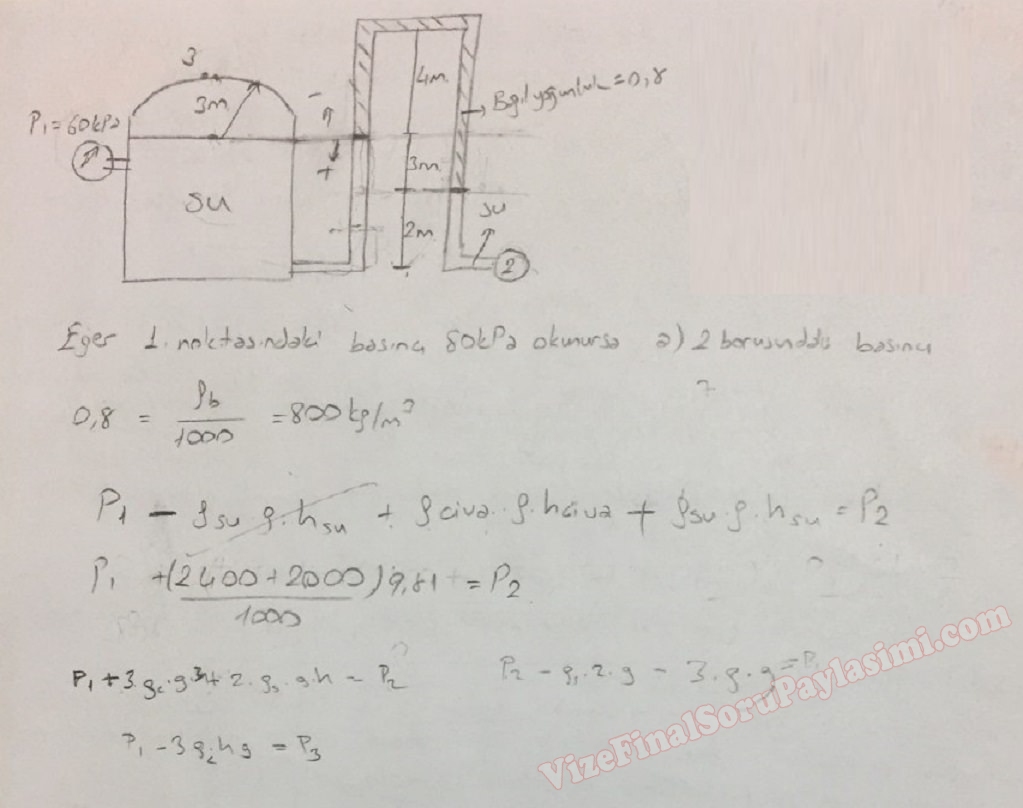 3
3m
P₁ = 60kPa
SU
-
+
4m
3m
2m
Bağıl yoğunluk = 0,8
SU
2
Eğer 1. noktasındaki basınç 60kPa okunursa a) 2 borusundaki basınç
?
0,8 = ρb / 1000 = 800 kg/m³
P₁ - ρsu g.hsu + ρciva.g.hciva + ρsu.g.hsu = P₂
P₁ + (2400 + 2000) 9,81 / 1000 = P₂
P₂ - ρ₁.2.g - 3.ρ.g = P₁
P₁ - 3 ρ h g = P₃
VizeFinalSoruPaylasimi.com